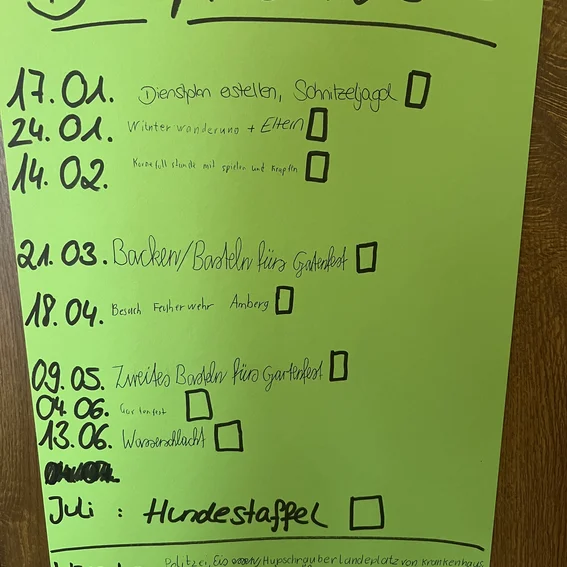 17.01. Dienstplan estellen, Schnitzeljagd
24.01. Winterwanderung + Eltern
14.02. stunde mit spielen und Krapfen
21.03. Backen/Basteln fürs Gartenfest
18.04. Besuch Feuherwehr Amberg
09.05. Zweites Basteln fürs Gartenfest
04.06. Gartenfest
13.06. Wasserschlacht
Juli : Hundestaffel
Politzei, Eis essen, Hupschrauberlandeplatz von Krankenhaus